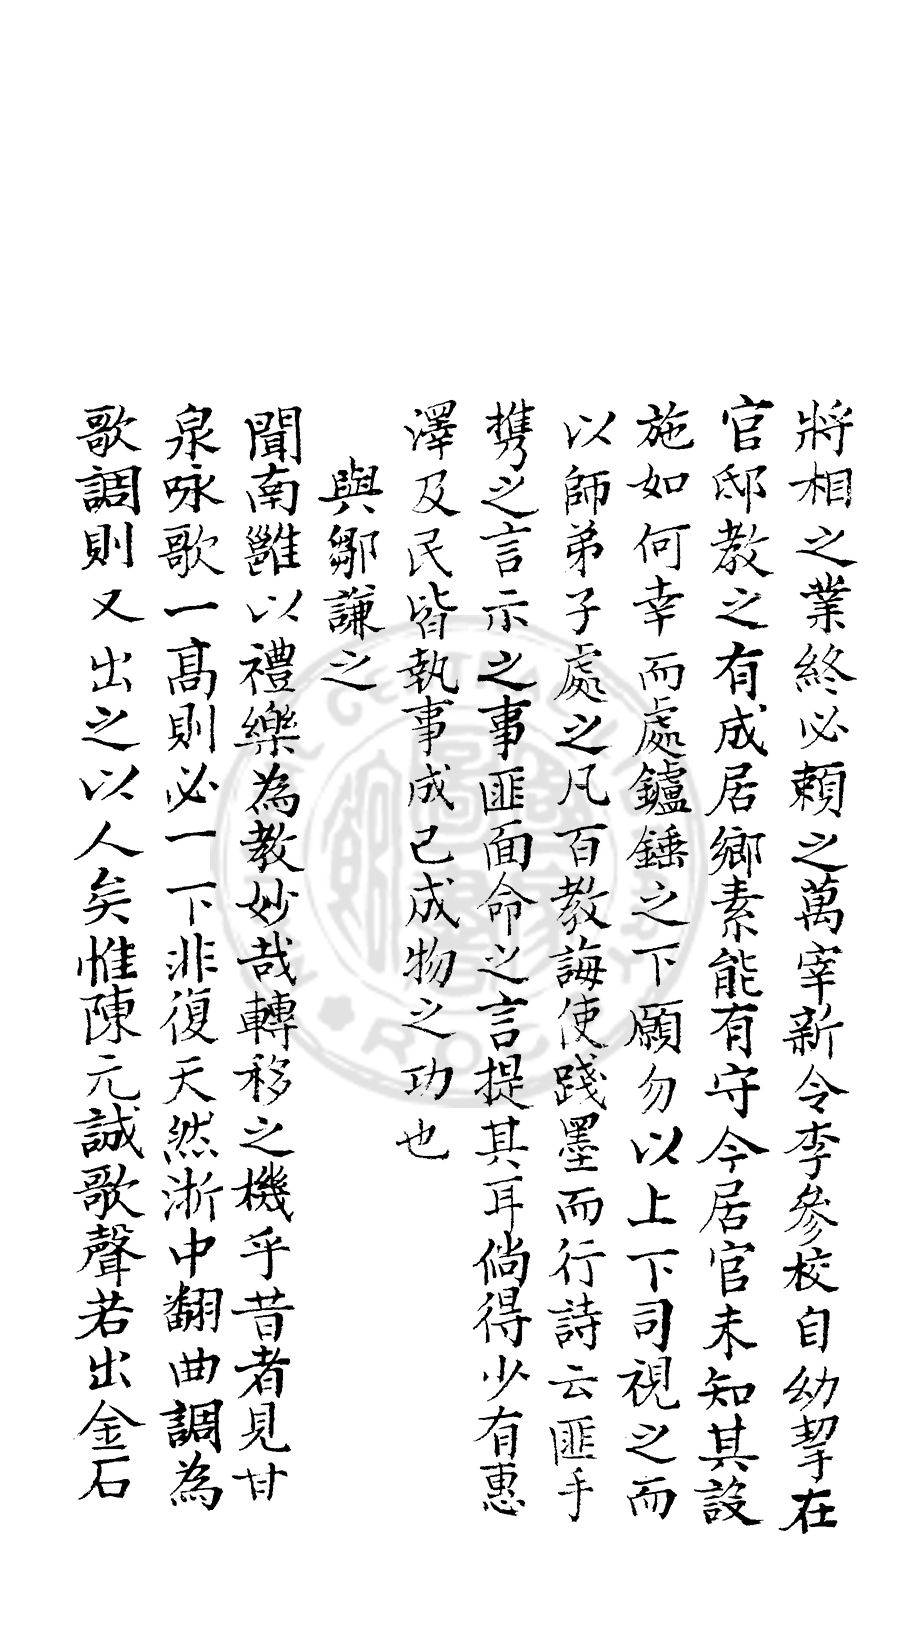 將相之業終必賴之萬宰新令李參校自幼挈在
官邸教之有成居鄉素能有守今居官未知其設
施如何幸而處鑪錘之下願勿以上下司視之而
以師弟子處之凡百教誨使踐墨而行詩云匪手
携之言示之事匪面命之言提其耳倘得少有惠
澤及民皆執事成己成物之功也
與鄒謙之
聞南雝以禮樂為教妙哉轉移之機乎昔者見甘
泉咏歌一高則必一下非復天然浙中翻曲調為
歌調則又出之以人矣惟陳元誠歌聲若出金石